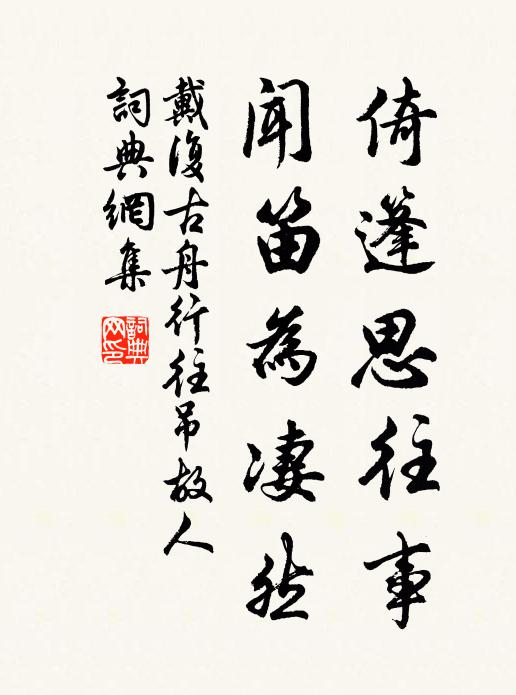 倚篷思往事
闻笛為凄然
戴復古舟行往吊故人
詞典網集
詞典网印